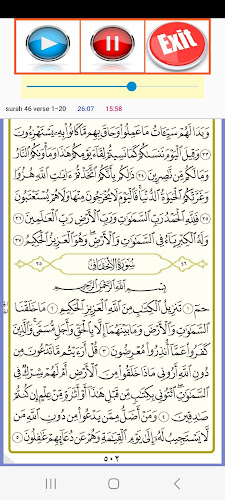 Exit
surah 46 verse 1-20 26:07 15:58
وَبَدَا لَهُمْ سَيِّـَٔاتُ مَا عَمِلُوا۟ وَحَاقَ بِهِم مَّا كَانُوا۟ بِهِۦ يَسْتَهْزِءُونَ
٣٣ وَقِيلَ ٱلْيَوْمَ نَنسَىٰكُمْ كَمَا نَسِيتُمْ لِقَآءَ يَوْمِكُمْ هَٰذَا وَمَأْوَىٰكُمُ ٱلنَّارُ
وَمَا لَكُم مِّن نَّٰصِرِينَ ٣٤ ذَٰلِكُم بِأَنَّكُمُ ٱتَّخَذْتُمْ ءَايَٰتِ ٱللَّهِ هُزُوًا
وَغَرَّتْكُمُ ٱلْحَيَوٰةُ ٱلدُّنْيَا فَٱلْيَوْمَ لَا يُخْرَجُونَ مِنْهَا وَلَا هُمْ يُسْتَعْتَبُونَ
٣٥ فَلِلَّهِ ٱلْحَمْدُ رَبِّ ٱلسَّمَٰوَٰتِ وَرَبِّ ٱلْأَرْضِ رَبِّ ٱلْعَٰلَمِينَ ٣٦
وَلَهُ ٱلْكِبْرِيَآءُ فِى ٱلسَّمَٰوَٰتِ وَٱلْأَرْضِ وَهُوَ ٱلْعَزِيزُ ٱلْحَكِيمُ ٣٧
٤٦ سُورَةُ الأَحْقَافِ ٣٥
بِسْمِ ٱللَّهِ ٱلرَّحْمَٰنِ ٱلرَّحِيمِ
حمٓ ١ تَنزِيلُ ٱلْكِتَٰبِ مِنَ ٱللَّهِ ٱلْعَزِيزِ ٱلْحَكِيمِ ٢ مَا خَلَقْنَا
ٱلسَّمَٰوَٰتِ وَٱلْأَرْضَ وَمَا بَيْنَهُمَآ إِلَّا بِٱلْحَقِّ وَأَجَلٍ مُّسَمًّى وَٱلَّذِينَ
كَفَرُوا۟ عَمَّآ أُنذِرُوا۟ مُعْرِضُونَ ٣ قُلْ أَرَءَيْتُم مَّا تَدْعُونَ مِن
دُونِ ٱللَّهِ أَرُونِى مَاذَا خَلَقُوا۟ مِنَ ٱلْأَرْضِ أَمْ لَهُمْ شِرْكٌ فِى
ٱلسَّمَٰوَٰتِ ٱئْتُونِى بِكِتَٰبٍ مِّن قَبْلِ هَٰذَآ أَوْ أَثَٰرَةٍ مِّنْ عِلْمٍ إِن كُنتُمْ
صَٰدِقِينَ ٤ وَمَنْ أَضَلُّ مِمَّن يَدْعُوا۟ مِن دُونِ ٱللَّهِ مَن
لَّا يَسْتَجِيبُ لَهُۥٓ إِلَىٰ يَوْمِ ٱلْقِيَٰمَةِ وَهُمْ عَن دُعَآئِهِمْ غَٰفِلُونَ ٥
٥٠٢